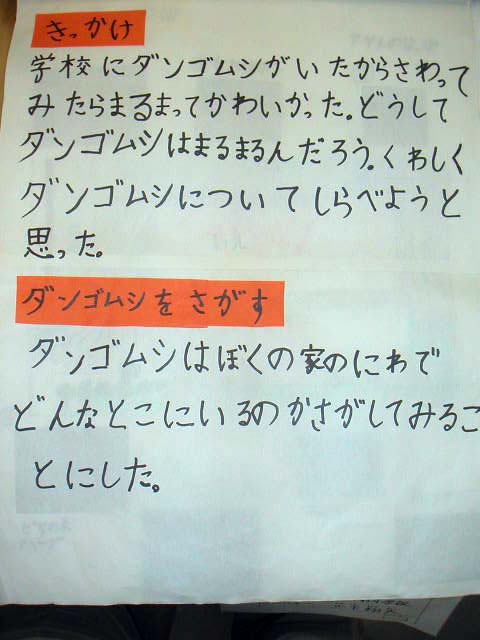 きっかけ
学校にダンゴムシがいたからさわって
みたらまるまってかわいかった。どうして
ダンゴムシはまるまるんだろう。くわしく
ダンゴムシについてしらべようと
思った。
ダンゴムシをさがす
ダンゴムシはぼくの家のにわで
どんなとこにいるのかさがしてみるこ
とにした。